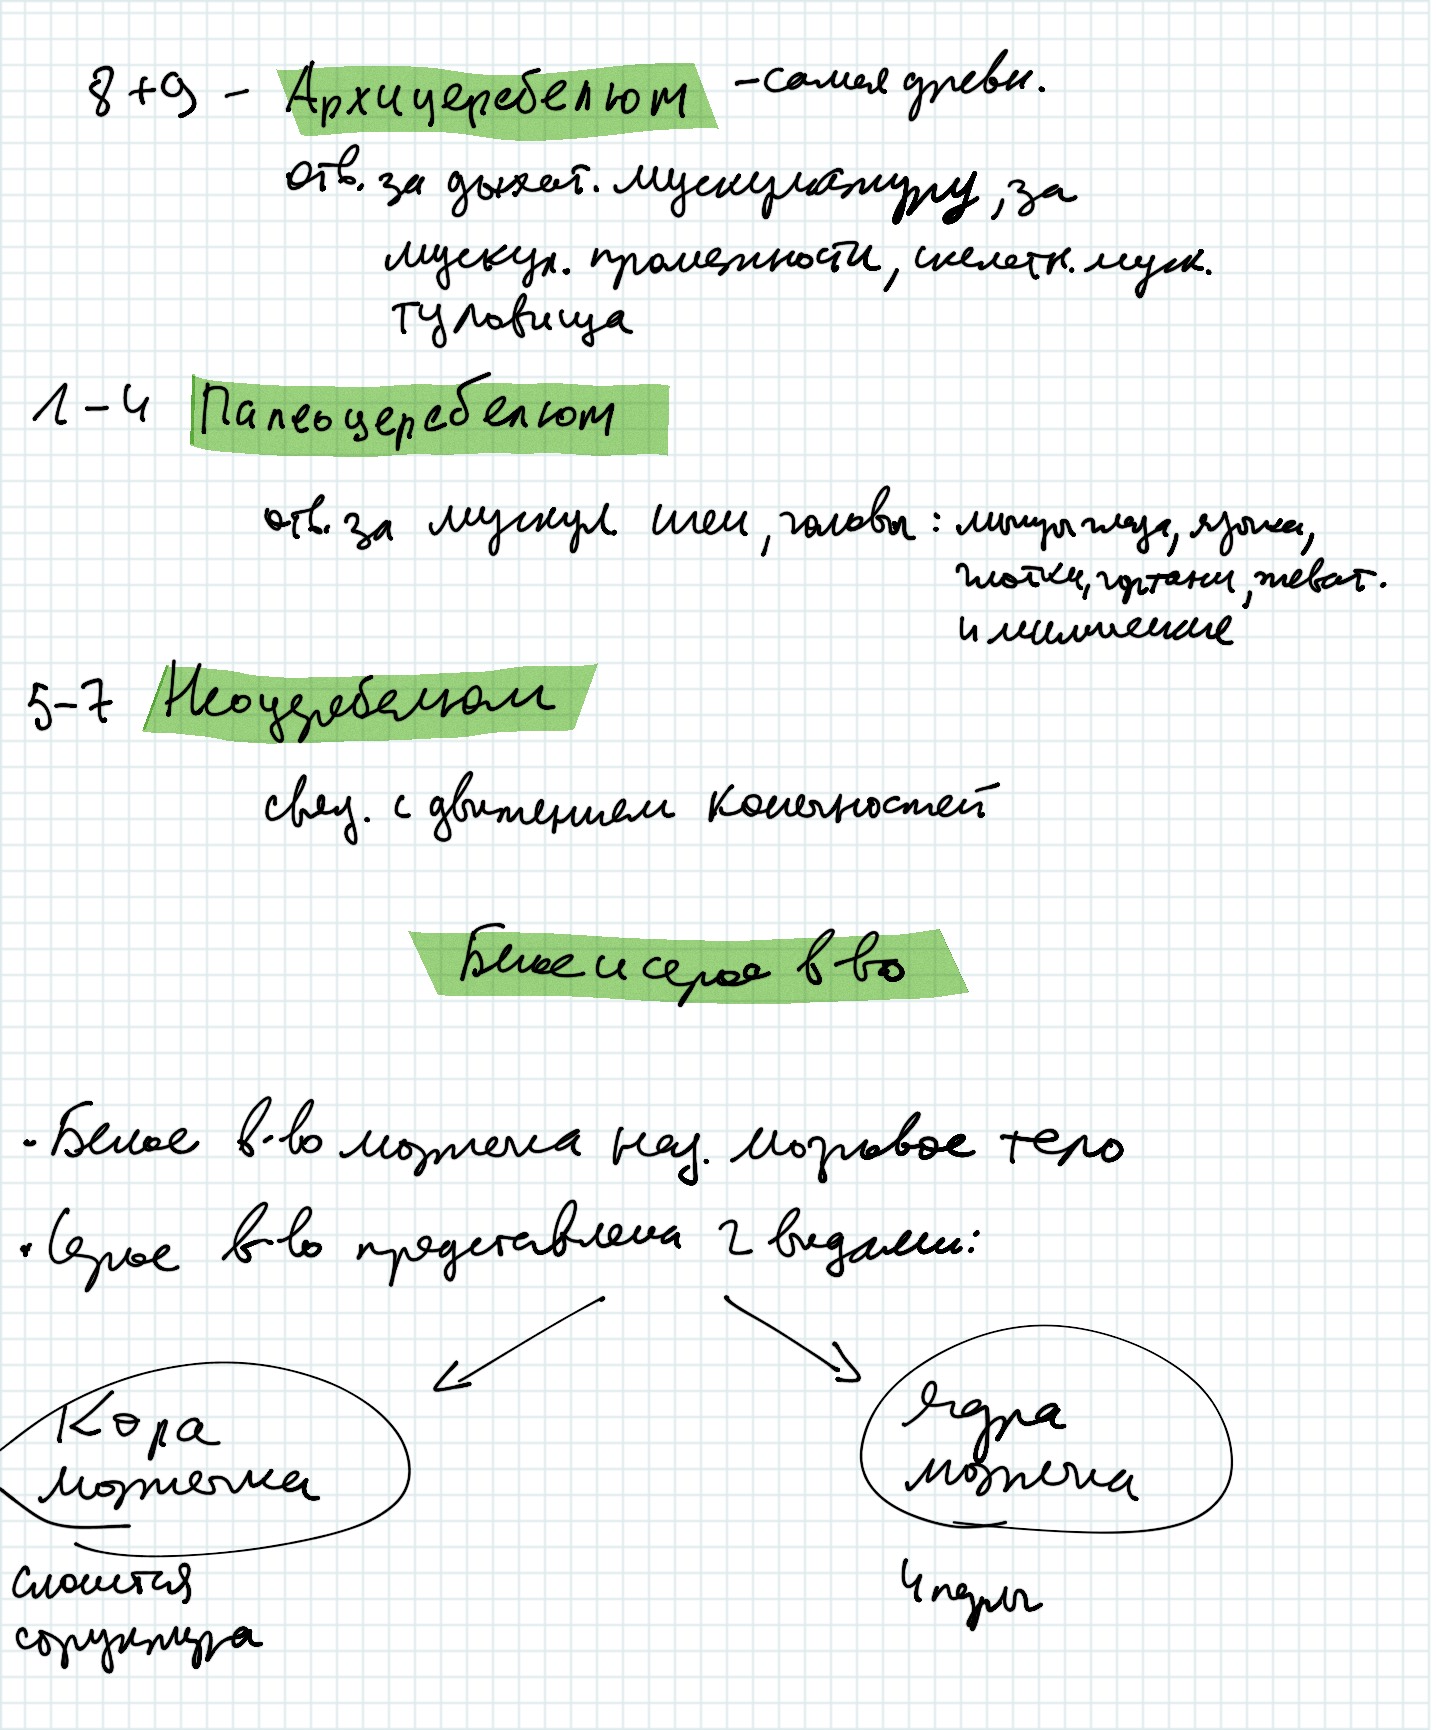 8+9 - Архицеребелюм - самая древн.
отв. за дыхат. мускулатуру, за
мускул. промежности, скелетн. муск.
туловища
1-4 Палеоцеребелюм
отв. за мускул. шеи, головы: мышцы глаза, языка,
глотки, гортани, жеват.
и мимические
5-7 Неоцеребелюм
связ. с движением конечностей
Белое и серое в-во
· Белое в-во мозжечка наз. мозговое тело
· Серое в-во представлена 2 видами:
Кора Ядра
мозжечка мозжечка
4 пары
структура